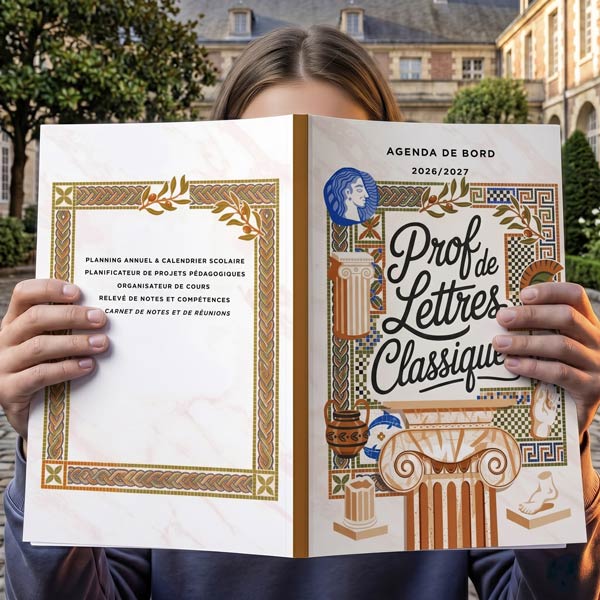 PLANNING ANNUEL & CALENDRIER SCOLAIRE
PLANIFICATEUR DE PROJETS PÉDAGOGIQUES
ORGANISATEUR DE COURS
RELEVÉ DE NOTES ET COMPÉTENCES
CARNET DE NOTES ET DE RÉUNIONS
AGENDA DE BORD
2026/2027
Prof de
Lettres
Classique